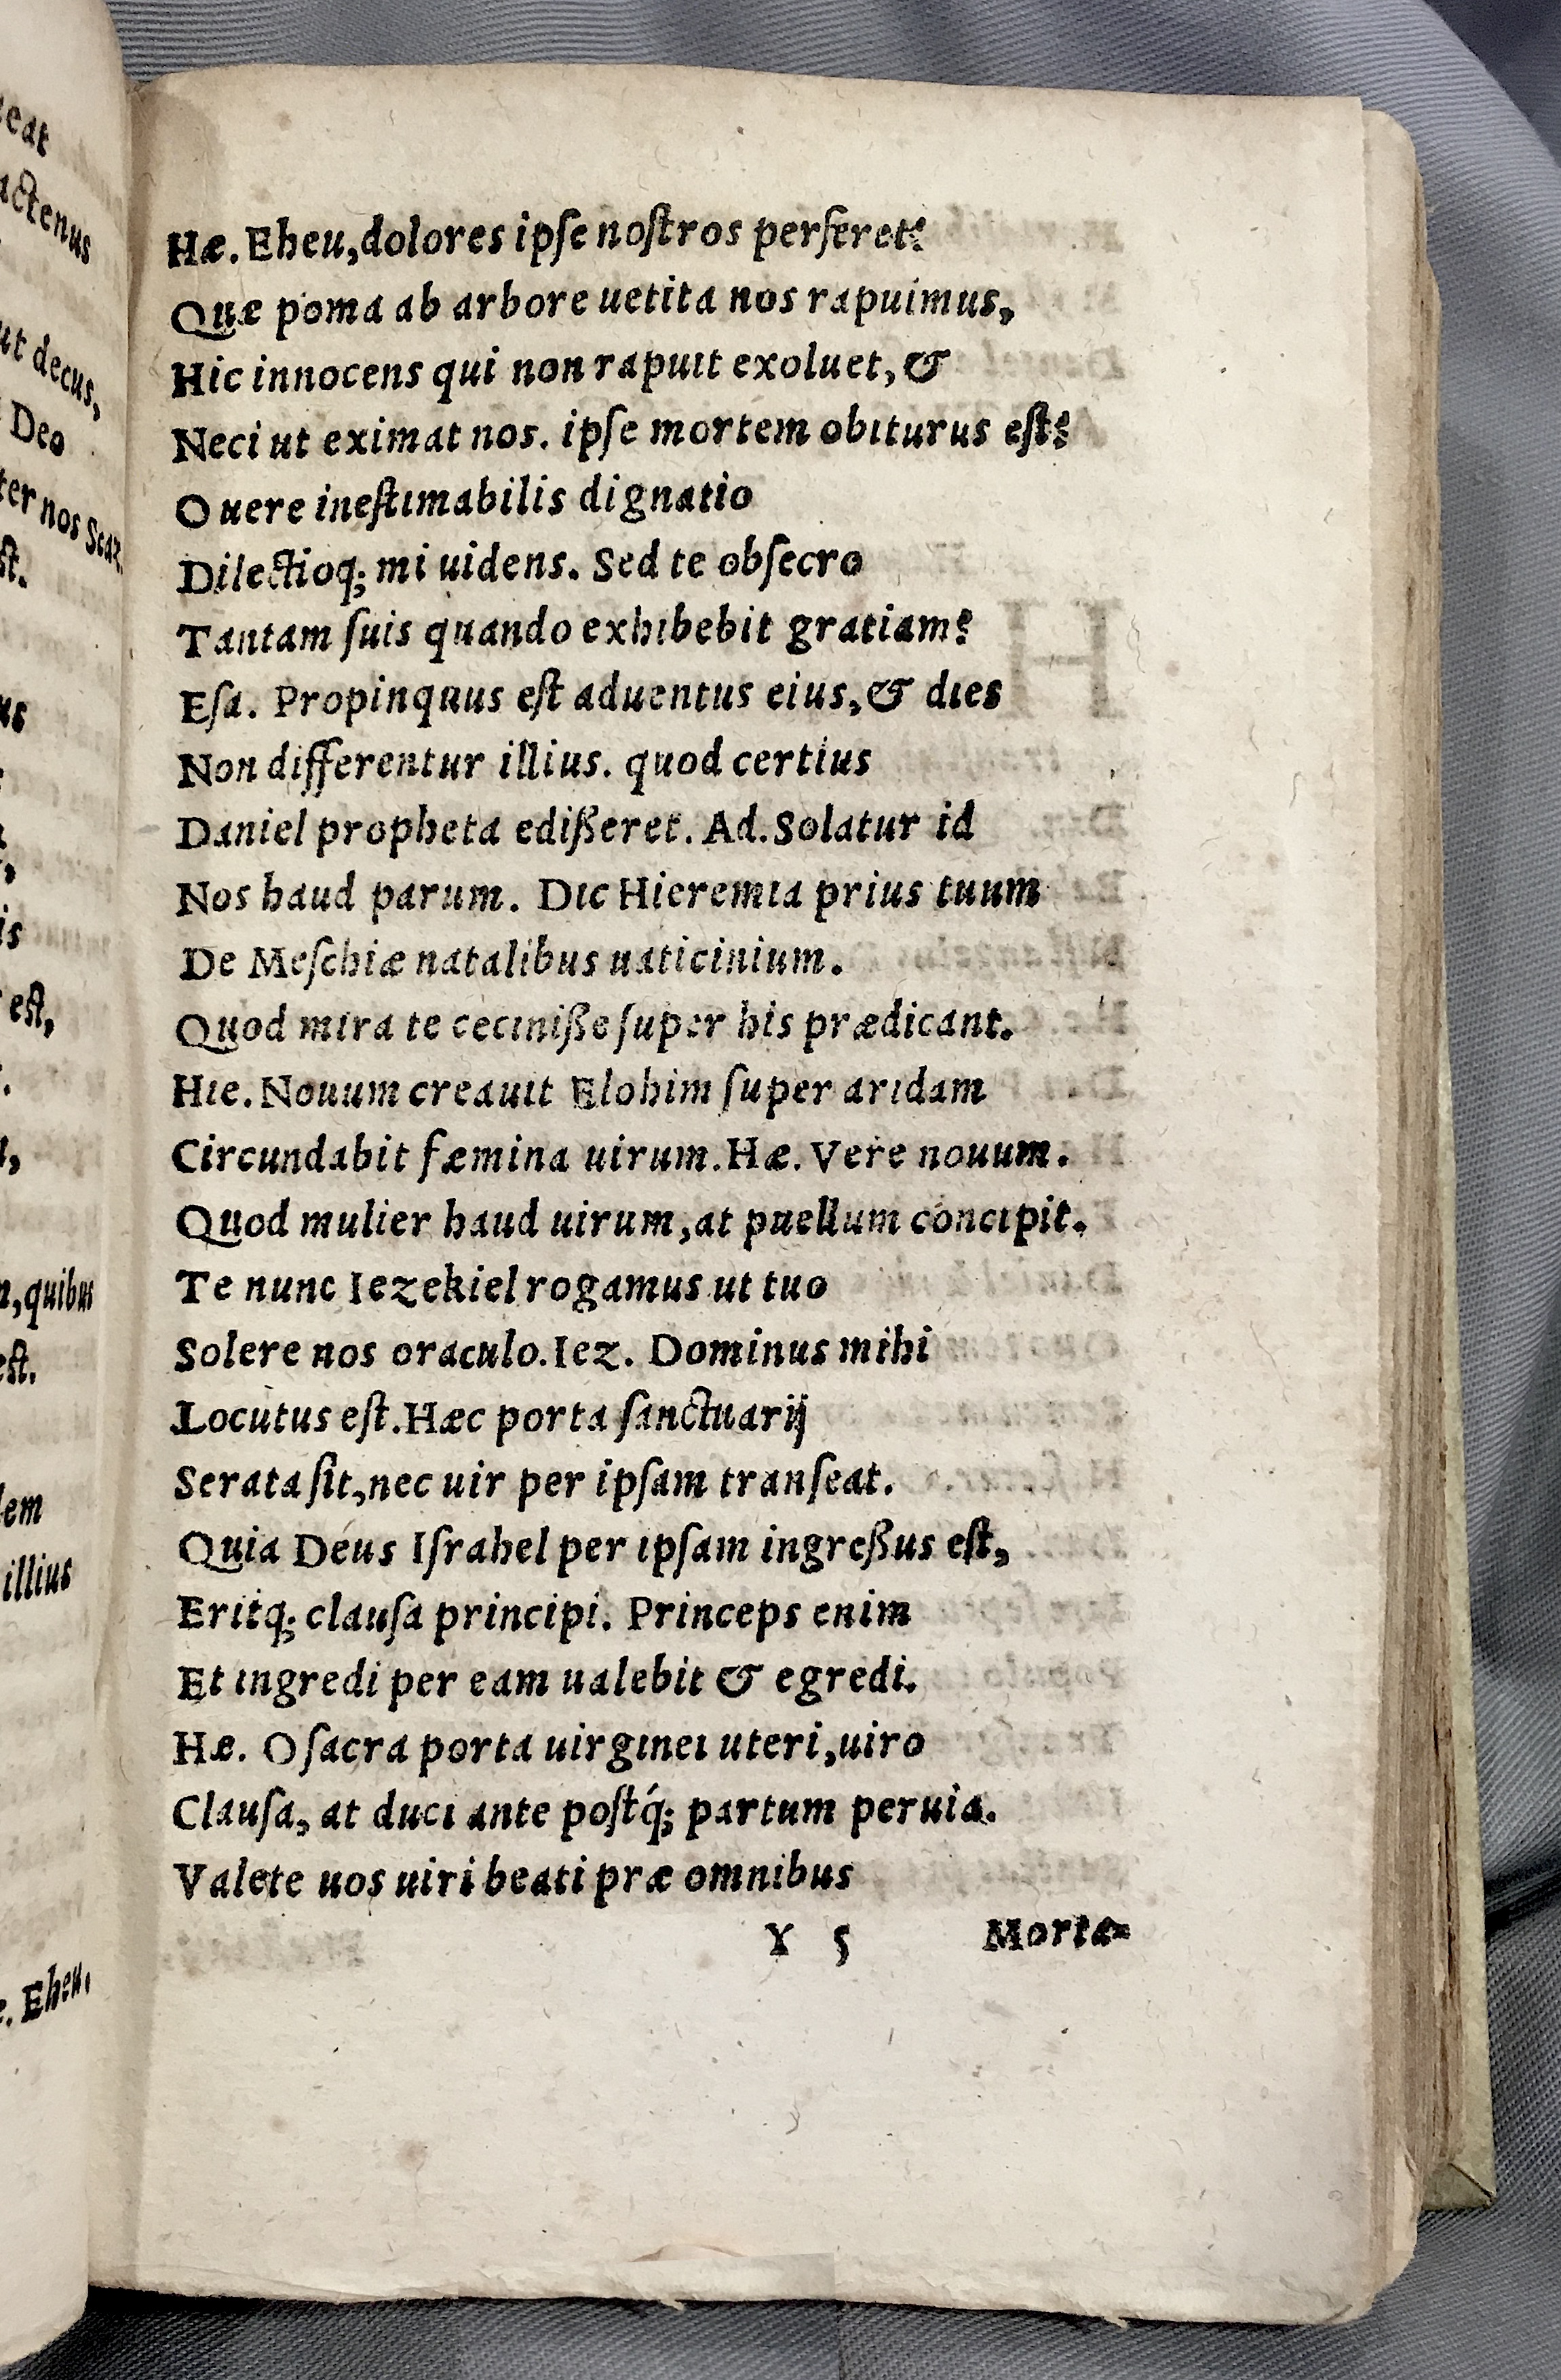 Hæ. Eheu, dolores ipſe noſtros perferet?
Quæ poma ab arbore uetita nos rapuimus,
Hic innocens qui non rapuit exoluet, &
Neci ut eximat nos. ipſe mortem obiturus eſt?
O uere ineſtimabilis dignatio
Dilectioq; mi uidens. Sed te obſecro
Tantam ſuis quando exhibebit gratiam?
Eſa. Propinquus eſt aduentus eius, & dies
Non differentur illius. quod certius
Daniel propheta edißeret. Ad. Solatur id
Nos haud parum. Dic Hieremia prius tuum
De Meſchiæ natalibus uaticinium.
Quod mira te ceciniße ſuper his prædicant.
Hie. Nouum creauit Elohim ſuper aridam
Circundabit fæmina uirum. Hæ. Vere nouum.
Quod mulier haud uirum, at puellum concipit.
Te nunc Iezekiel rogamus ut tuo
Solere nos oraculo. Iez. Dominus mihi
Locutus eſt. Hæc porta ſanctuarij
Serata ſit, nec uir per ipſam tranſeat.
Quia Deus Iſrahel per ipſam ingreßus eſt,
Eritq; clauſa principi. Princeps enim
Et ingredi per eam ualebit & egredi.
Hæ. O ſacra porta uirginei uteri, uiro
Clauſa, at duci ante poſtq́; partum peruia.
Valete uos uiri beati præ omnibus
Y 5 Morta-
eat
actenus
ut decus,
Deo
ter nos Scaz
ſt.
us
is
eſt,
n, quibus
eſt.
lem
illius
Eheu,